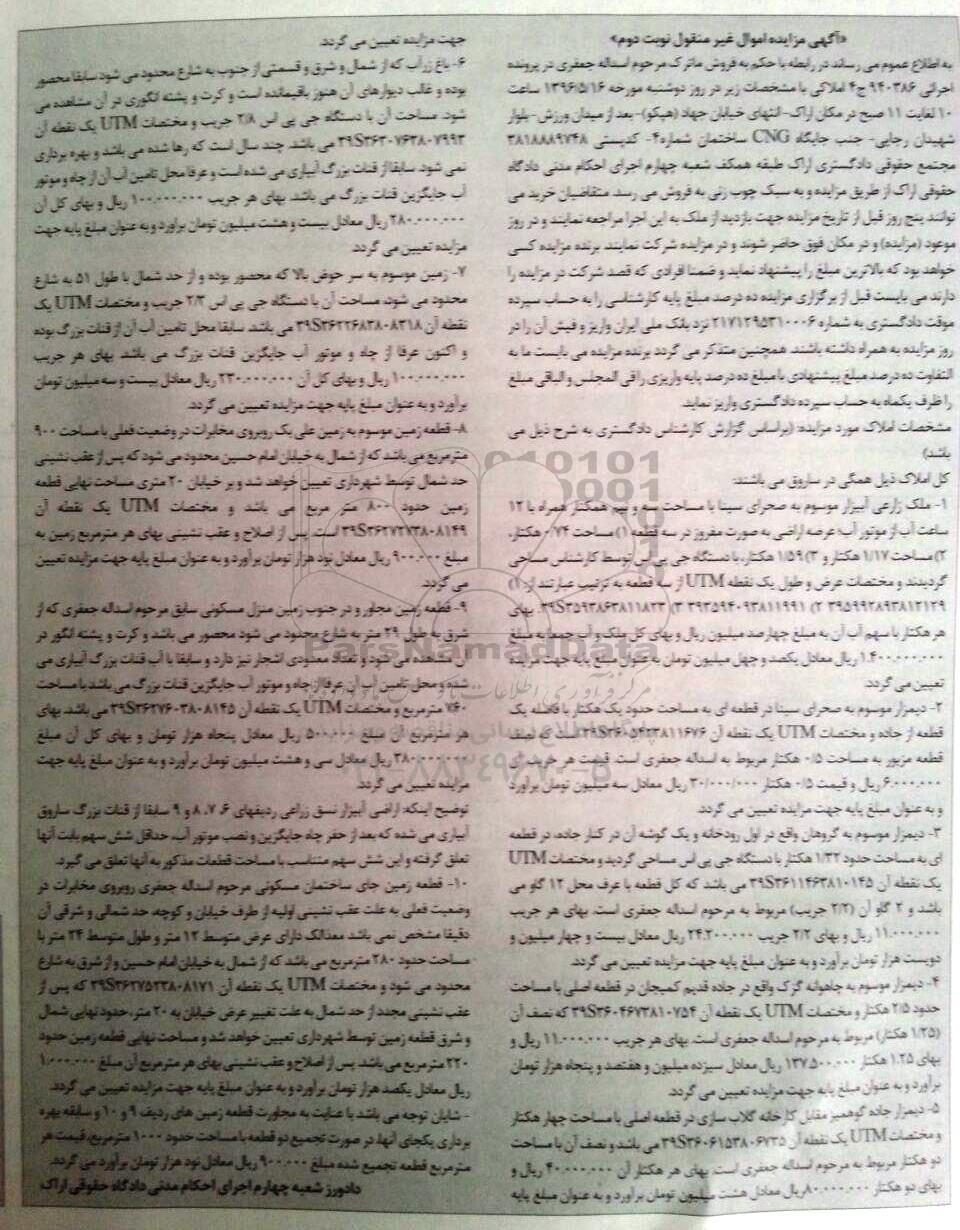 «آگهی مزایده اموال غیر منقول نوبت دوم»
به اطلاع عموم می رساند در رابطه با حکم به فروش ماترک مرحوم اسداله جعفری در پرونده
اجرائی ۹۴۰۳۸۶ ج۴ املاکی با مشخصات زیر در روز دوشنبه مورخه ۱۳۹۶/۵/۱۶ ساعت
۱۰ لغایت ۱۱ صبح در مکان اراک- انتهای خیابان جهاد (هپکو)- بعد از میدان ورزش- بلوار
شهیدان رجایی- جنب جایگاه CNG ساختمان شماره۴- کدپستی ۳۸۱۸۸۸۹۷۴۸
مجتمع حقوقی دادگستری اراک طبقه همکف شعبه چهارم اجرای احکام مدنی دادگاه
حقوقی اراک از طریق مزایده و به سبک چوب زنی به فروش می رسد. متقاضیان خرید می
توانند پنج روز قبل از تاریخ مزایده جهت بازدید از ملک به این اجرا مراجعه نمایند و در روز
موعود (مزایده) و در مکان فوق حاضر شوند و در مزایده شرکت نمایند. برنده مزایده کسی
خواهد بود که بالاترین مبلغ را پیشنهاد نماید و ضمنا افرادی که قصد شرکت در مزایده را
دارند می بایست قبل از برگزاری مزایده ده درصد مبلغ پایه کارشناسی را به حساب سپرده
موقت دادگستری به شماره ۲۱۷۱۲۹۵۳۱۰۰۰۶ نزد بانک ملی ایران واریز و فیش آن را در
روز مزایده به همراه داشته باشند. همچنین متذکر می گردد برنده مزایده می بایست ما به
التفاوت ده درصد مبلغ پیشنهادی با مبلغ ده درصد پایه واریزی را فی المجلس و الباقی مبلغ
را ظرف یکماه به حساب سپرده دادگستری واریز نماید.
مشخصات املاک مورد مزایده: (براساس گزارش کارشناس دادگستری به شرح ذیل می
باشد)
کل املاک ذیل همگی در ساروق می باشند:
۱- ملک زارعی آبیزار موسوم به صحرای سینا با مساحت سه و نیم هکتار همراه با ۱۲
ساعت آب از موتور آب؛ عرصه اراضی به صورت مفروز در سه قطعه ۱) مساحت ۰/۷۴ هکتار،
۲) مساحت ۱/۱۷ هکتار و ۳) ۱/۵۹ هکتار، با دستگاه جی پی اس توسط کارشناس مساحی
گردیدند و مختصات عرض و طول یک نقطه UTM از سه قطعه به ترتیب عبارتند از: ۱)
۳۹۵۹۹۲۸۹۳۸۱۲۱۲۹ ۲) ۳۹۳۵۹۴۰۹۳۸۱۱۹۹۱ ۳) ۳۹S۳۵۹۳۸۶۳۸۱۱۸۲۳. بهای
هر هکتار با سهم آب آن به مبلغ چهارصد میلیون ریال و بهای کل ملک و آب جمعا به مبلغ
۱.۴۰۰.۰۰۰.۰۰۰ ریال معادل یکصد و چهل میلیون تومان به عنوان مبلغ پایه جهت مزایده
تعیین می گردد.
۲- دیمزار موسوم به صحرای سینا در قطعه ای به مساحت حدود یک هکتار با فاصله یک
قطعه از جاده و مختصات UTM یک نقطه آن ۳۹S۳۶۰۵۴۲۳۸۱۱۶۷۶ است که نصف
قطعه مزبور به مساحت ۰/۵ هکتار مربوط به اسداله جعفری است. قیمت هر
۶.۰۰۰.۰۰۰ ریال و قیمت ۰/۵ هکتار ۳۰/۰۰۰/۰۰۰ ریال معادل سه میلیون تومان برآورد
و به عنوان مبلغ پایه جهت مزایده تعیین می گردد.
۳- دیمزار موسوم به گروهان واقع در اول رودخانه و یک گوشه آن در کنار جاده، در قطعه
ای به مساحت حدود ۱/۳۲ هکتار با دستگاه جی پی اس مساحی گردید و مختصات UTM
یک نقطه آن ۳۹S۳۶۱۱۴۶۳۸۱۰۱۴۵ می باشد که کل قطعه با عرف محل ۱۲ گاو می
باشد و ۲ گاو آن (۲/۲ جریب) مربوط به مرحوم اسداله جعفری است. بهای هر جریب
۱۱.۰۰۰.۰۰۰ ریال و بهای ۲/۲ جریب ۲۴.۲۰۰.۰۰۰ ریال معادل بیست و چهار میلیون و
دویست هزار تومان برآورد و به عنوان مبلغ پایه جهت مزایده تعیین می گردد.
۴- دیمزار موسوم به چاهوانه گزک واقع در جاده قدیم کمیجان در قطعه اصلی با مساحت
حدود ۲/۵ هکتار و مختصات UTM یک نقطه آن ۳۹S۳۶۰۴۶۷۳۸۱۰۷۵۴ که نصف آن
(۱/۲۵ هکتار) مربوط به مرحوم اسداله جعفری است. بهای هر جریب ۱۱.۰۰۰.۰۰۰ ریال و
بهای ۱.۲۵ هکتار ۱۳۷.۵۰۰.۰۰۰ ریال معادل سیزده میلیون و هفتصد و پنجاه هزار تومان
برآورد و به عنوان مبلغ پایه جهت مزایده تعیین می گردد.
۵- دیمزار جاده گوهمیر مقابل کارخانه گلاب سازی در قطعه اصلی با مساحت چهار هکتار
و مختصات UTM یک نقطه آن ۳۹S۳۶۰۶۱۵۳۸۰۶۷۳۵ می باشد و نصف آن با مساحت
دو هکتار مربوط به مرحوم اسداله جعفری است. بهای هر هکتار آن ۴۰.۰۰۰.۰۰۰ ریال و
بهای دو هکتار ۸۰.۰۰۰.۰۰۰ ریال معادل هشت میلیون تومان برآورد و به عنوان مبلغ پایه
جهت مزایده تعیین می گردد.
۶- باغ زرآب که از شمال و شرق و قسمتی از جنوب به شارع محدود می شود سابقا محصور
بوده و غالب دیوارهای آن هنوز باقیمانده است و کرت و پشته انگوری در آن مشاهده می
شود. مساحت آن با دستگاه جی پی اس ۲/۸ جریب و مختصات UTM یک نقطه آن
۳۹S۳۶۳۰۷۶۳۸۰۷۹۹۳ می باشد. چند سال است که رها شده می باشد و بهره برداری
نمی شود. سابقا از قنات بزرگ آبیاری می شده است و عرفا محل تامین آب آن از چاه و موتور
آب جایگزین قنات بزرگ می باشد. بهای هر جریب ۱۰۰.۰۰۰.۰۰۰ ریال و بهای کل آن
۲۸۰.۰۰۰.۰۰۰ ریال معادل بیست و هشت میلیون تومان برآورد و به عنوان مبلغ پایه جهت
مزایده تعیین می گردد.
۷- زمین موسوم به سر حوض بالا که محصور بوده و از حد شمال با طول ۵۱ به شارع
محدود می شود، مساحت آن با دستگاه جی پی اس ۲/۳ جریب و مختصات UTM یک
نقطه آن ۳۹S۳۶۲۲۶۸۳۸۰۸۳۱۸ می باشد. سابقا محل تامین آب آن از قنات بزرگ بوده
و اکنون عرفا از چاه و موتور آب جایگزین قنات بزرگ می باشد. بهای هر جریب
۱۰۰.۰۰۰.۰۰۰ ریال و بهای کل آن ۲۳۰.۰۰۰.۰۰۰ ریال معادل بیست و سه میلیون تومان
برآورد و به عنوان مبلغ پایه جهت مزایده تعیین می گردد.
۸- قطعه زمین موسوم به زمین علی بک روبروی مخابرات در وضعیت فعلی با مساحت ۹۰۰
مترمربع می باشد که از شمال به خیابان امام حسین محدود می شود که پس از عقب نشینی
حد شمال توسط شهرداری تعیین خواهد شد و بر خیابان ۲۰ متری مساحت نهایی قطعه
زمین حدود ۸۰۰ متر مربع می باشد و مختصات UTM یک نقطه آن
۳۹S۳۶۲۷۲۷۳۸۰۸۱۴۹ است. پس از اصلاح و عقب نشینی بهای هر مترمربع زمین به
مبلغ ۹۰۰.۰۰۰ ریال معادل نود هزار تومان برآورد و به عنوان مبلغ پایه جهت مزایده تعیین
می گردد.
۹- قطعه زمین مجاور و در جنوب زمین منزل مسکونی سابق مرحوم اسداله جعفری که از
شرق به طول ۲۹ متر به شارع محدود می شود محصور می باشد و کرت و پشته انگور در
آن مشاهده می شود و تعداد معدودی اشجار نیز دارد و سابقا با آب قنات بزرگ آبیاری می
شده و محل تامین آب آن عرفا از چاه و موتور آب جایگزین قنات بزرگ می باشد با مساحت
۷۶۰ مترمربع و مختصات UTM یک نقطه آن ۳۹S۳۶۲۷۶۰۳۸۰۸۱۴۵ می باشد. بهای
هر مترمربع آن مبلغ ۵۰۰.۰۰۰ ریال معادل پنجاه هزار تومان و بهای کل آن مبلغ
۳۸۰.۰۰۰.۰۰۰ ریال معادل سی و هشت میلیون تومان برآورد و به عنوان مبلغ پایه جهت
مزایده تعیین می گردد.
توضیح اینکه: اراضی آبیزار نسق زراعی ردیفهای ۶، ۷، ۸ و ۹ سابقا از قنات بزرگ ساروق
آبیاری می شده که بعد از حفر چاه جایگزین و نصب موتور آب، حداقل شش سهم بابت آنها
تعلق گرفته و این شش سهم متناسب با مساحت قطعات مذکور به آنها تعلق می گیرد.
۱۰- قطعه زمین جای ساختمان مسکونی مرحوم اسداله جعفری روبروی مخابرات در
وضعیت فعلی به علت عقب نشینی اولیه از طرف خیابان و کوچه، حد شمالی و شرقی آن
دقیقا مشخص نمی باشد معذالک دارای عرض متوسط ۱۲ متر و طول متوسط ۲۴ متر با
مساحت حدود ۲۸۰ مترمربع می باشد که از شمال به خیابان امام حسین و از شرق به شارع
محدود می شود و مختصات UTM یک نقطه آن ۳۹S۳۶۲۷۵۲۳۸۰۸۱۷۱ که پس از
عقب نشینی مجدد از حد شمال به علت تغییر عرض خیابان به ۲۰ متر، حدود نهایی شمال
و شرق قطعه زمین توسط شهرداری تعیین خواهد شد و مساحت نهایی قطعه زمین حدود
۲۲۰ مترمربع می باشد. پس از اصلاح و عقب نشینی بهای هر مترمربع آن مبلغ ۱.۰۰۰.۰۰۰
ریال معادل یکصد هزار تومان برآورد و به عنوان مبلغ پایه جهت مزایده تعیین می گردد.
- شایان توجه می باشد با عنایت به مجاورت قطعه زمین های ردیف ۹ و ۱۰ و سابقه بهره
برداری یکجای آنها، در صورت تجمیع دو قطعه با مساحت حدود ۱۰۰۰ مترمربع، قیمت هر
مترمربع قطعه تجمیع شده مبلغ ۹۰۰.۰۰۰ ریال معادل نود هزار تومان برآورد می گردد.
دادورز شعبه چهارم اجرای احکام مدنی دادگاه حقوقی اراک
ParsNamadData